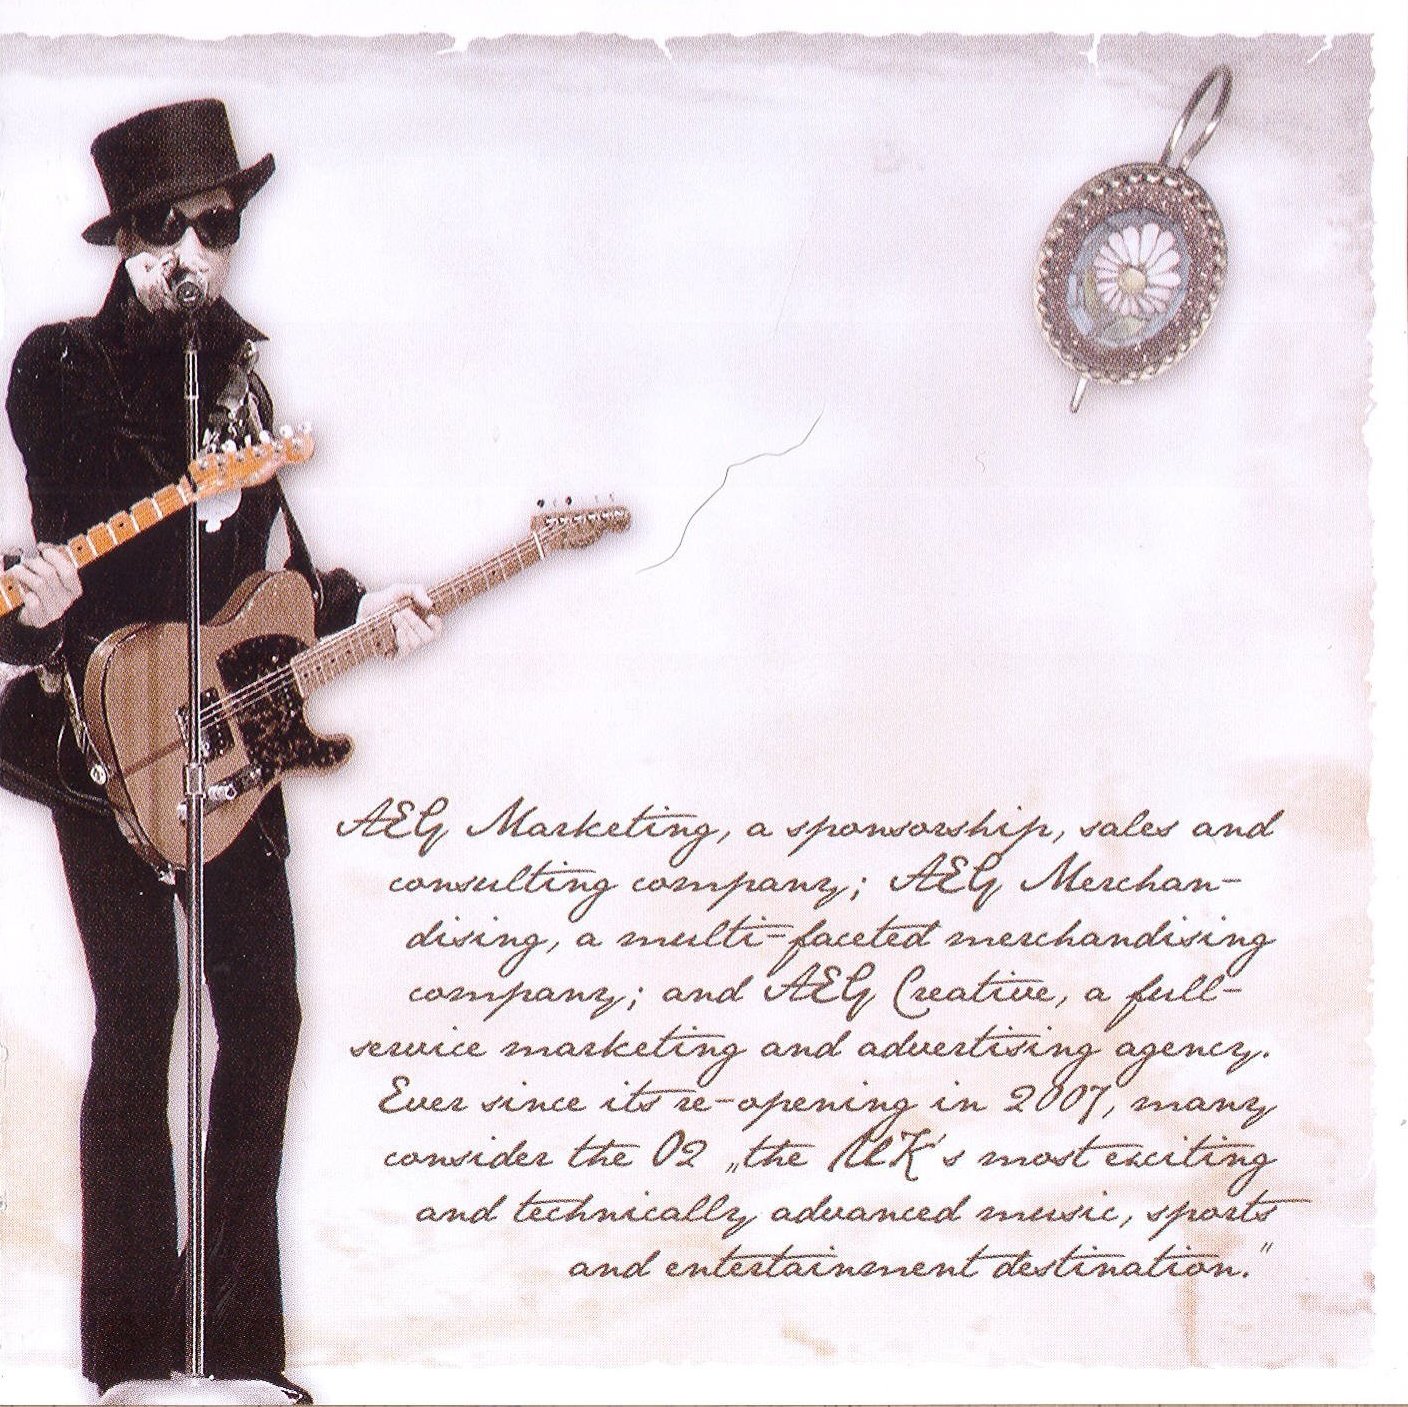 AEG Marketing, a sponsorship, sales and
consulting company; AEG Merchan-
dising, a multi-faceted merchandising
company; and AEG Creative, a full-
service marketing and advertising agency.
Ever since its re-opening in 2007, many
consider the O2 „the UK's most exciting
and technically advanced music, sports
and entertainment destination."